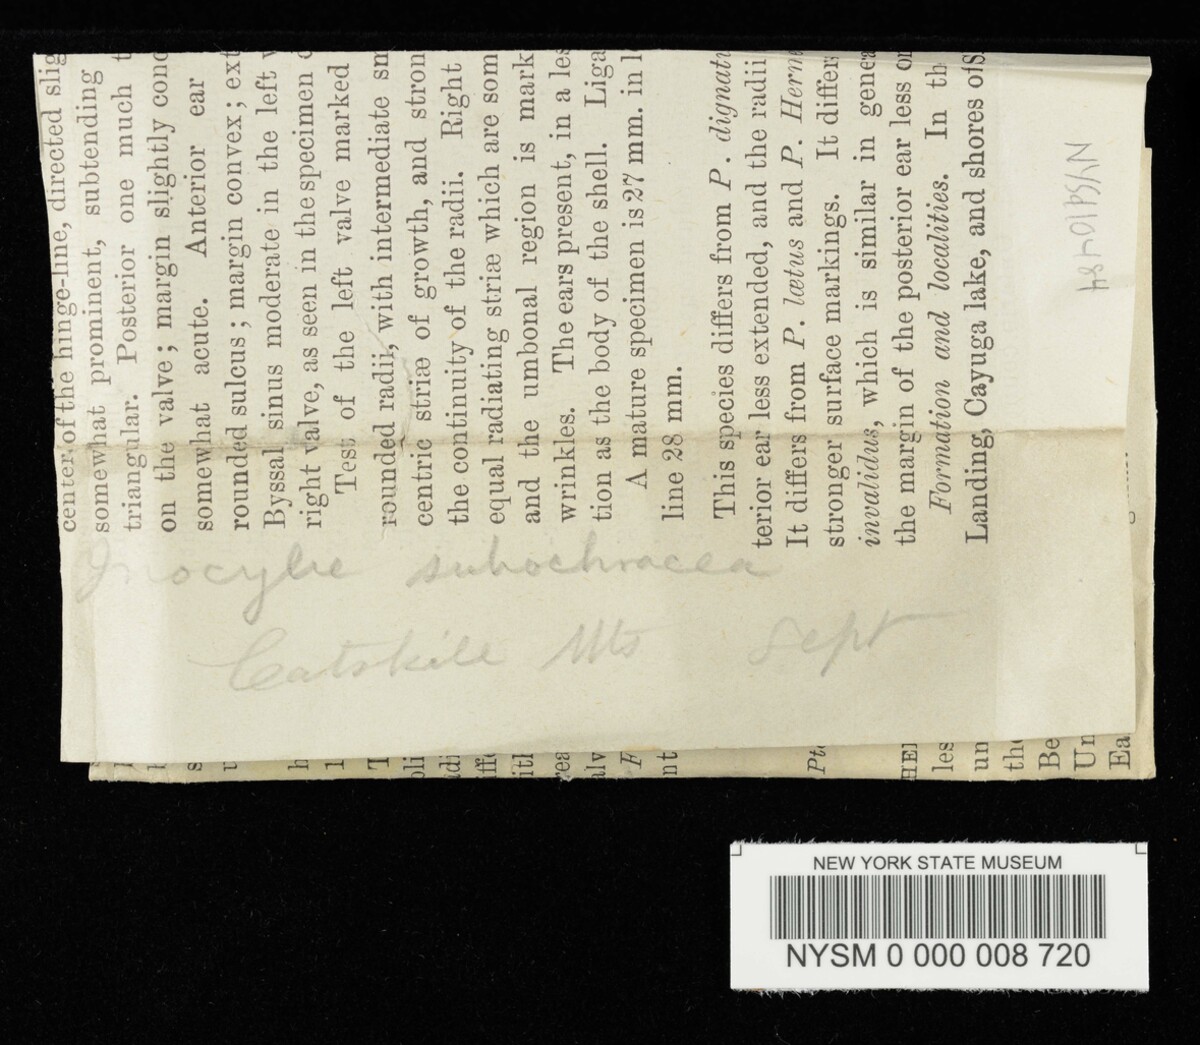 center of the hinge-line, directed slig
somewhat prominent, subtending
triangular. Posterior one much t
on the valve; margin slightly conc
somewhat acute. Anterior ear
rounded sulcus; margin convex; ext
Byssal sinus moderate in the left v
right valve, as seen in the specimen o
Test of the left valve marked
rounded radii, with intermediate sm
centric striæ of growth, and stron
the continuity of the radii. Right
equal radiating striæ which are som
and the umbonal region is mark
wrinkles. The ears present, in a les
tion as the body of the shell. Liga
A mature specimen is 27 mm. in l
line 28 mm.
This species differs from P. dignatu
terior ear less extended, and the radii
It differs from P. lætus and P. Herm
stronger surface markings. It differ
invalidus, which is similar in genera
the margin of the posterior ear less or
Formation and localities. In th
Landing, Cayuga lake, and shores of S
Inocybe subochracea
Catskill Mts Sept
Pt
HE
les
un
the
Be
Un
Ea
NEW YORK STATE MUSEUM
NYSM 0 000 008 720